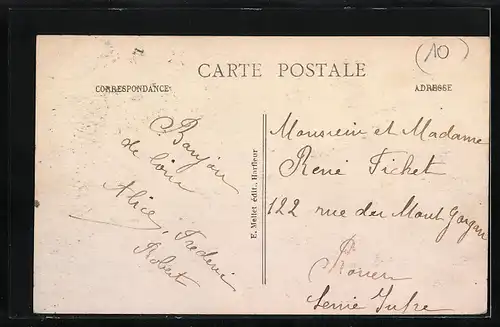 (10)
CARTE POSTALE
CORRESPONDANCE
ADRESSE
Bonjour
de loin
Alice, Frederic
Robert
E. Mellet édit., Harfleur
Monsieur et Madame
René Fichet
122 rue du Mont Gargan
Rouen
Seine Infre